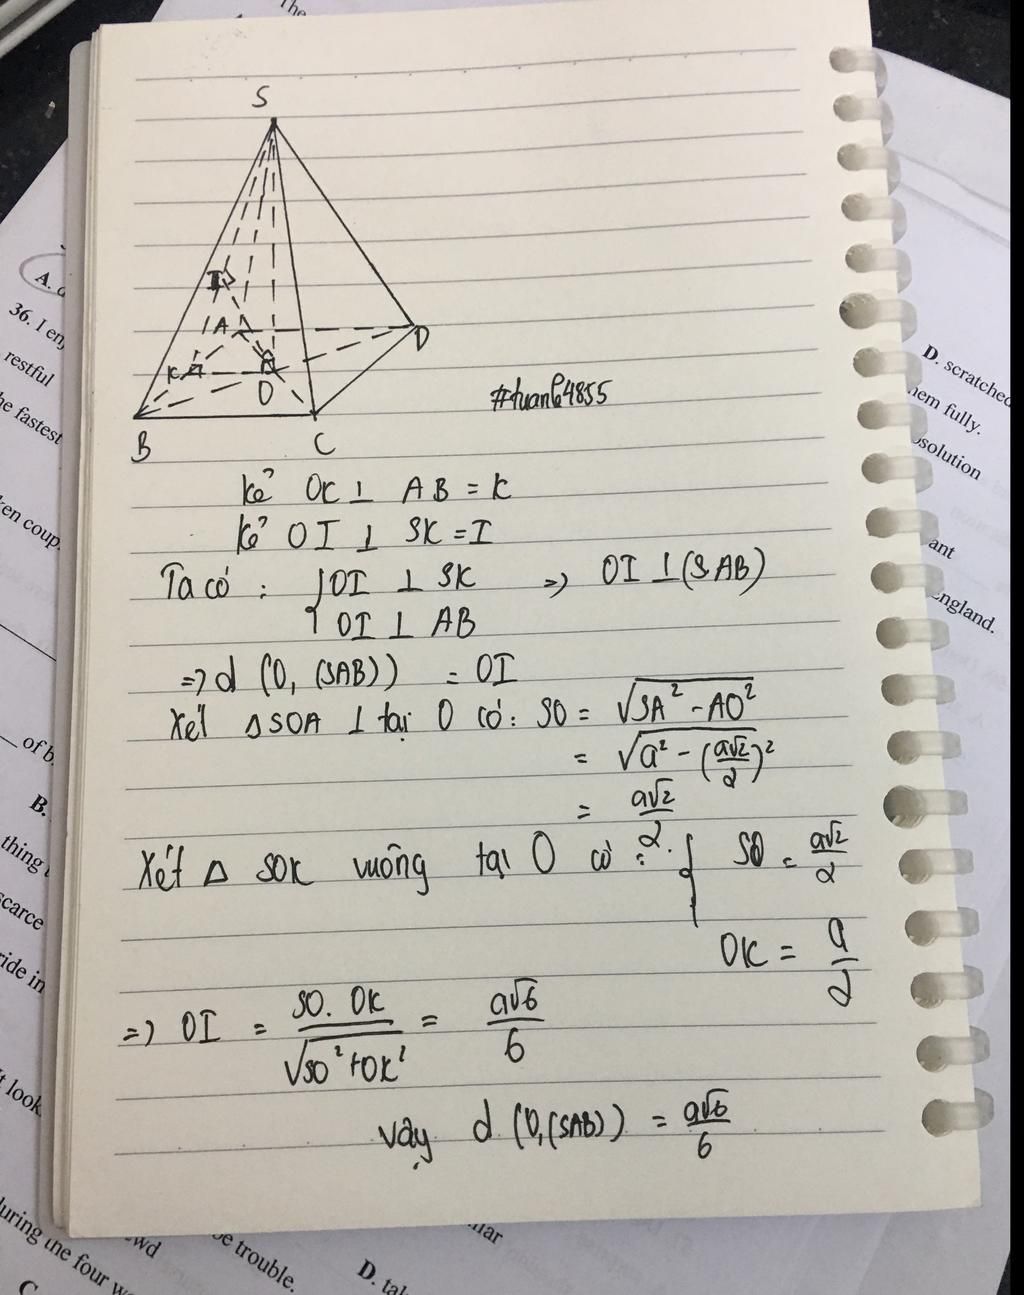 S
I
A
D
K
O
B
C
#tuan64855
Kẻ OK ⊥ AB = K
Kẻ OI ⊥ SK = I
Ta có : { OI ⊥ SK => OI ⊥ (SAB)
OI ⊥ AB
=> d (O, (SAB)) = OI
Xét Δ SOA ⊥ tại O có: SO = √(SA² - AO²)
= √(a² - (a√2/2)²)
= a√2/2
Xét Δ SOK vuông tại O có : { SO = a√2/2
OK = a/2
=> OI = SO. OK/√(SO² + OK²) = a√6/6
Vậy d (O, (SAB)) = a√6/6
A.
36. I
restful
he fastest
ken coup.
of b
B.
thing
scarce
ride in
look
during the four
be trouble.
C
D.
D. scratched
hem fully.
ant
England.